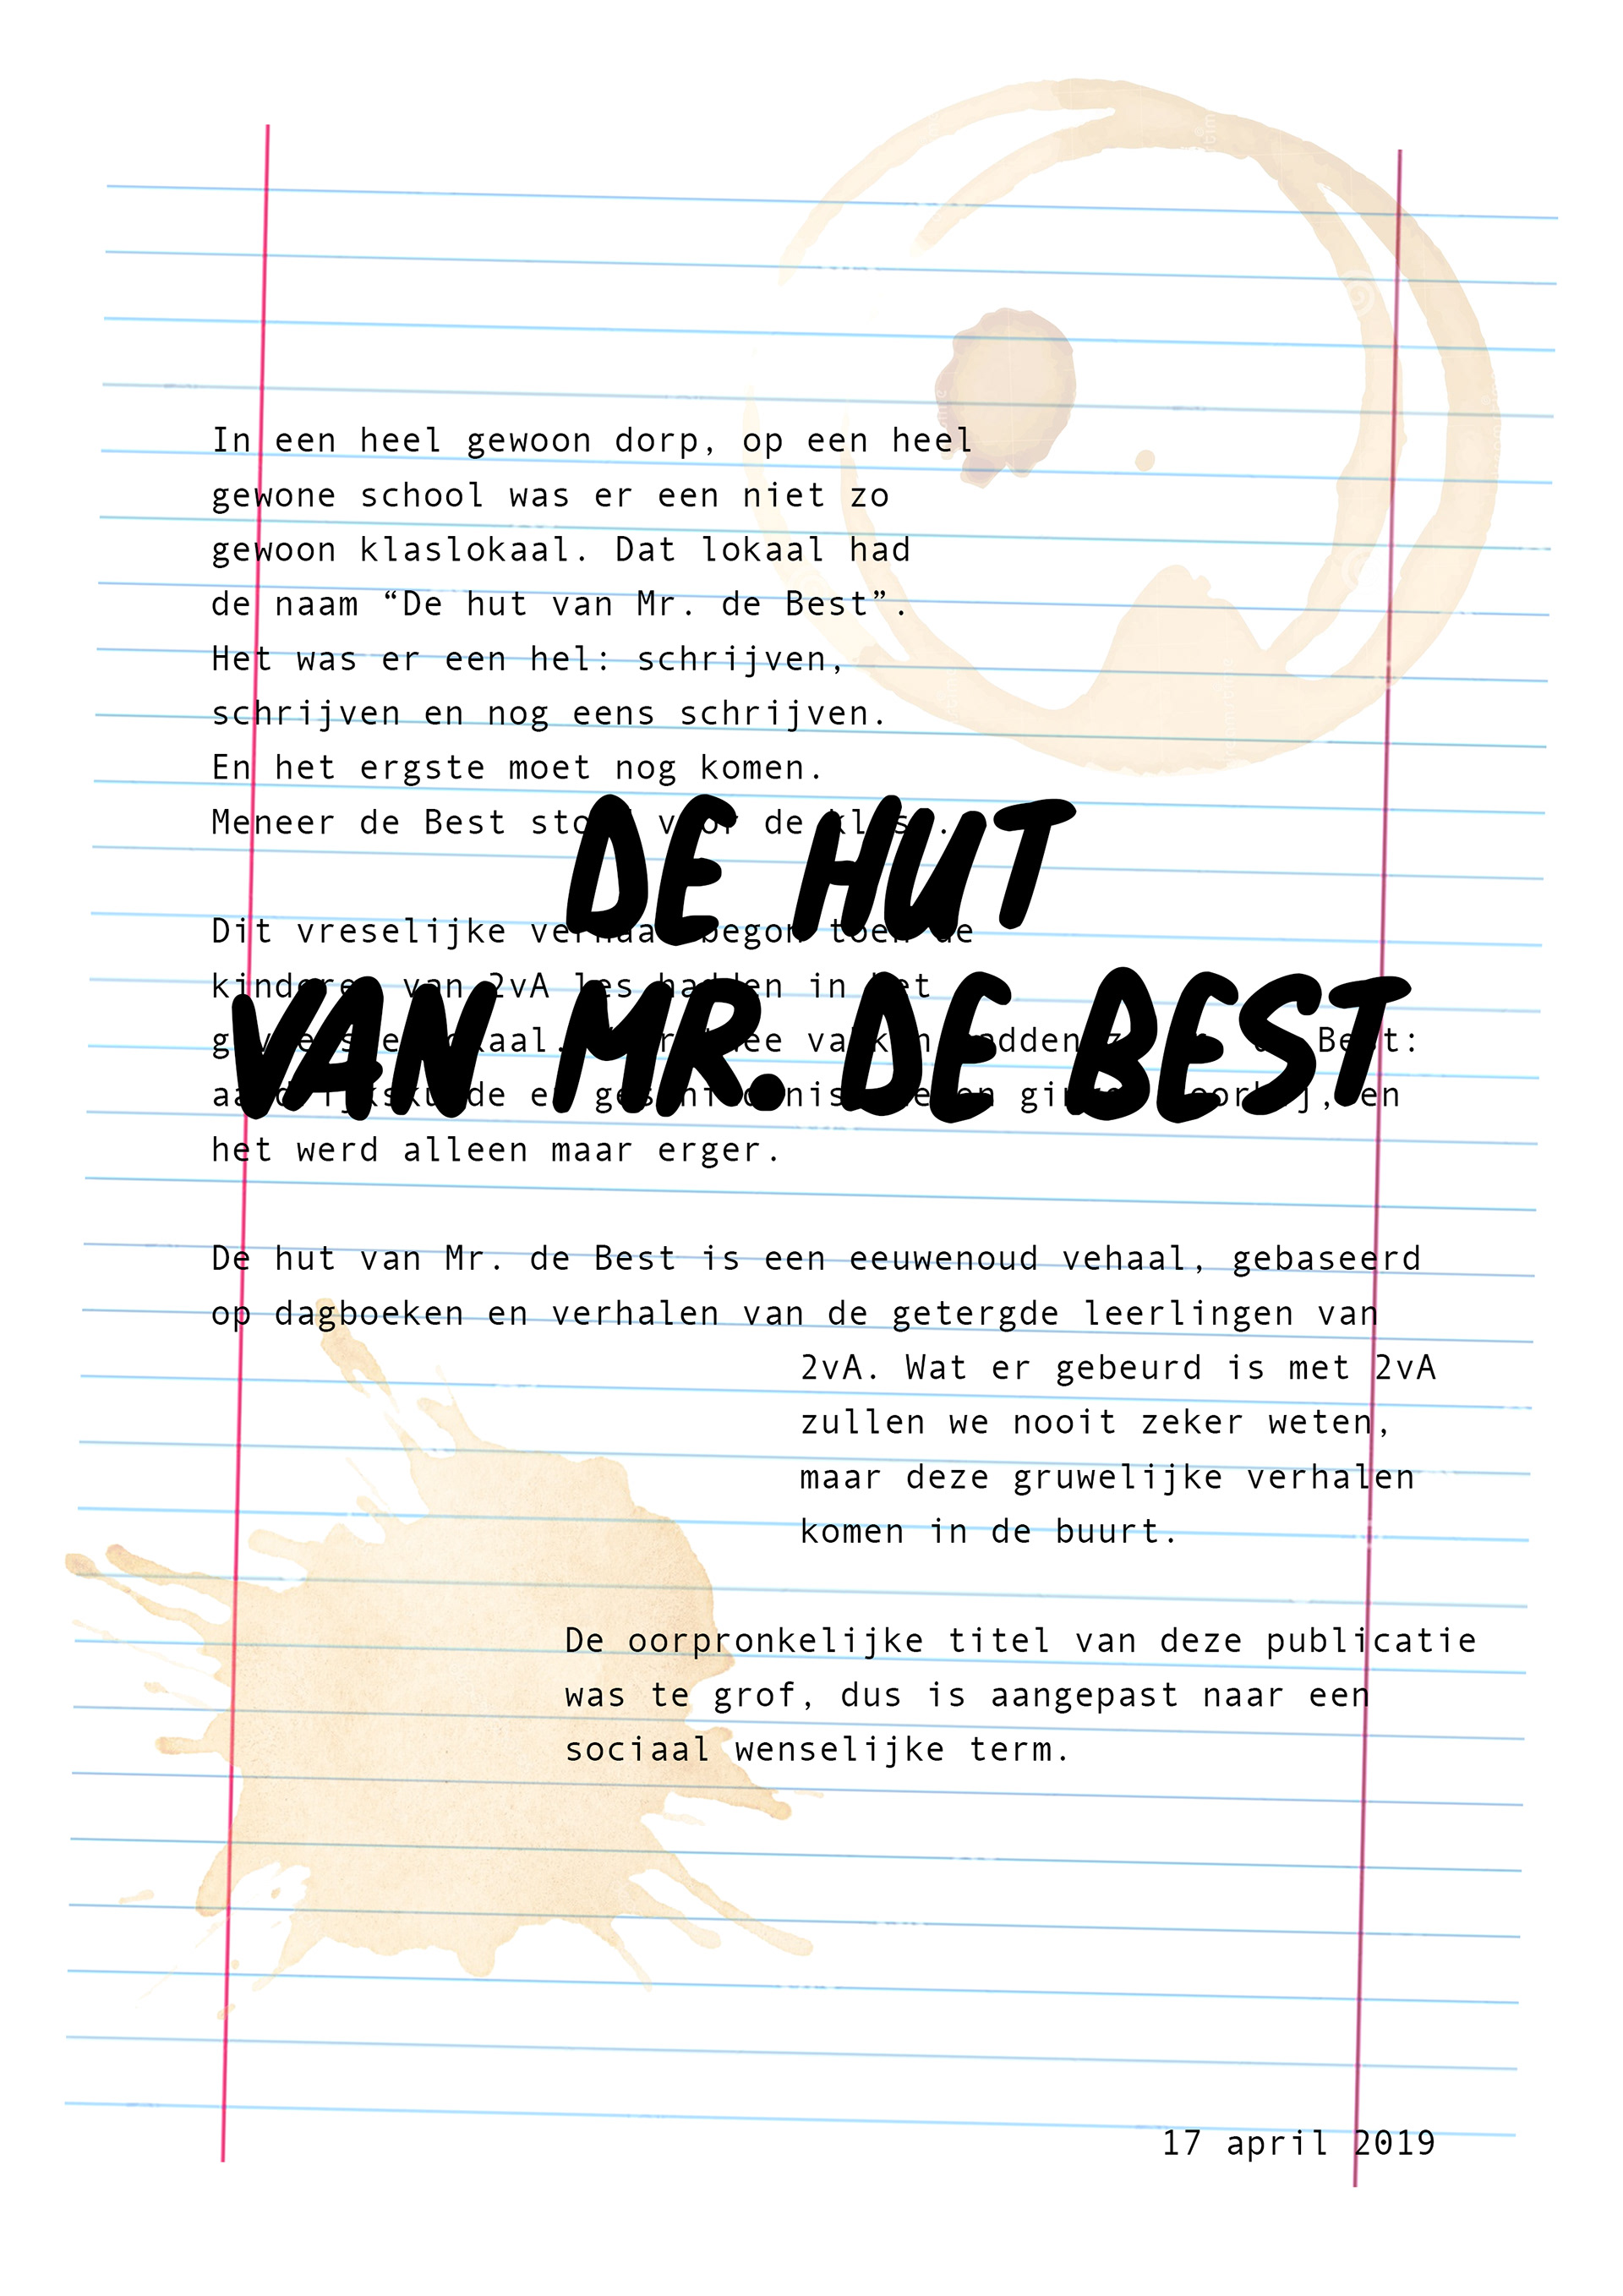 In een heel gewoon dorp, op een heel
gewone school was er een niet zo
gewoon klaslokaal. Dat lokaal had
de naam “De hut van Mr. de Best”.
Het was er een hel: schrijven,
schrijven en nog eens schrijven.
En het ergste moet nog komen.
Meneer de Best stond voor de klas.
DE HUT
Dit vreselijke verhaal begon toen de
kinderen van 2vA les hadden in het
VAN MR. DE BEST
gevreesde lokaal. twee vakken hadden ze de Best:
aardrijkskunde en geschiedenis. gingen voorbij, en
het werd alleen maar erger.
De hut van Mr. de Best is een eeuwenoud vehaal, gebaseerd
op dagboeken en verhalen van de getergde leerlingen van
2vA. Wat er gebeurd is met 2vA
zullen we nooit zeker weten,
maar deze gruwelijke verhalen
komen in de buurt.
De oorpronkelijke titel van deze publicatie
was te grof, dus is aangepast naar een
sociaal wenselijke term.
17 april 2019